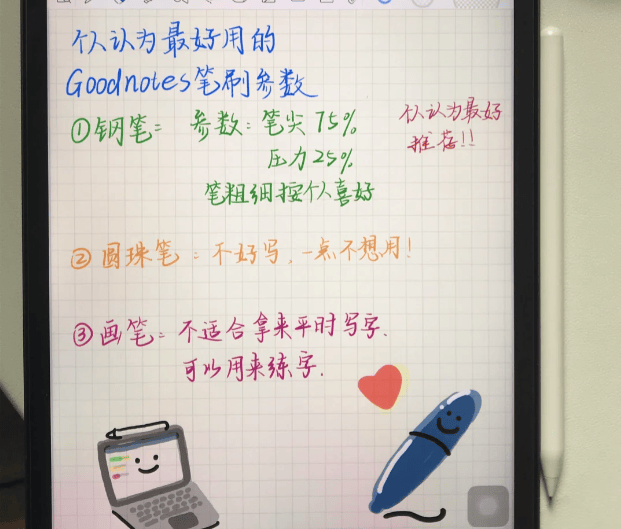 个人认为最好用的
Goodnotes笔刷参数
①钢笔: 参数:笔尖 75%
压力 25%
笔粗细按个人喜好
个人认为最好
推荐!!
②圆珠笔:不好写,一点不想用!
③画笔:不适合拿来平时写字.
可以用来练字.